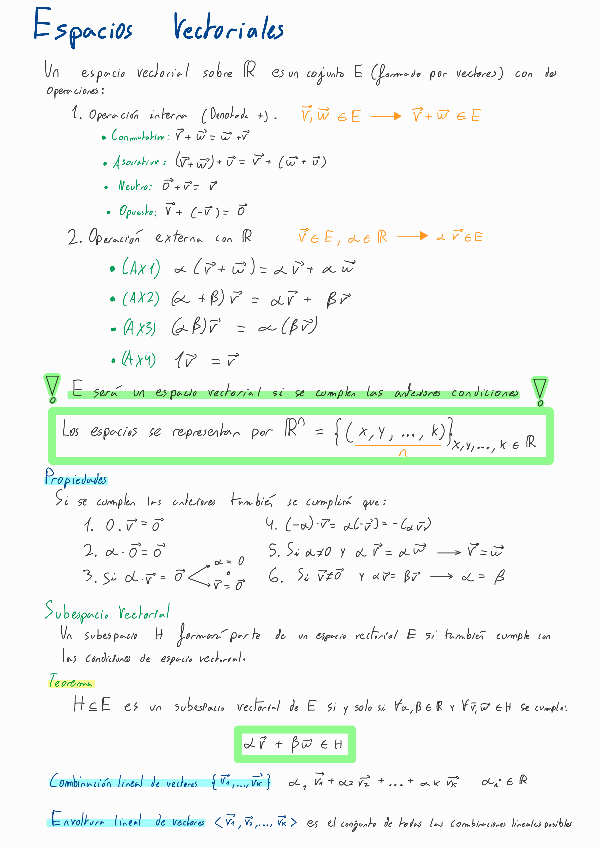 Espacios Vectoriales
Un espacio vectorial sobre ℝ es un cojunto E (formado por vectores) con dos
operaciones:
1. Operación interna (Denotada +). v⃗, w⃗ ∈ E ⟶ v⃗ + w⃗ ∈ E
• Conmutativa: v⃗ + w⃗ = w⃗ + v⃗
• Asociativa: (v⃗ + w⃗) + u⃗ = v⃗ + (w⃗ + u⃗)
• Neutro: 0⃗ + v⃗ = v⃗
• Opuesto: v⃗ + (-v⃗) = 0⃗
2. Operación externa con ℝ v⃗ ∈ E, α ∈ ℝ ⟶ α v⃗ ∈ E
• (AX1) α (v⃗ + w⃗) = α v⃗ + α w⃗
• (AX2) (α + β) v⃗ = α v⃗ + β v⃗
• (AX3) (α β) v⃗ = α (β v⃗)
• (AX4) 1 v⃗ = v⃗
! E será un espacio vectorial si se cumplen las anteriores condiciones !
Los espacios se representan por ℝⁿ = {(x, y, ..., k)} x, y, ..., k ∈ ℝ
n
Propiedades
Si se cumplen las anteriores también se cumplirá que:
1. 0 · v⃗ = 0⃗ 4. (-α) · v⃗ = α(-v⃗) = -(α v⃗)
2. α · 0⃗ = 0⃗ 5. Si α ≠ 0 y α v⃗ = α w⃗ ⟶ v⃗ = w⃗
3. Si α · v⃗ = 0⃗ α = 0 o v⃗ = 0⃗ 6. Si v⃗ ≠ 0⃗ y α v⃗ = β v⃗ ⟶ α = β
Subespacio Vectorial
Un subespacio H formará parte de un espacio vectorial E si también cumple con
las condiciones de espacio vectorial.
Teorema
H ⊆ E es un subespacio vectorial de E si y solo si ∀ α, β ∈ ℝ y ∀ v⃗, w⃗ ∈ H se cumple:
α v⃗ + β w⃗ ∈ H
Combinación lineal de vectores {v⃗₁, ..., v⃗ₖ} α₁ v⃗₁ + α₂ v⃗₂ + ... + αₖ v⃗ₖ αᵢ ∈ ℝ
Envoltura lineal de vectores <v⃗₁, v⃗₂, ..., v⃗ₖ> es el conjunto de todas las combinaciones lineales posibles